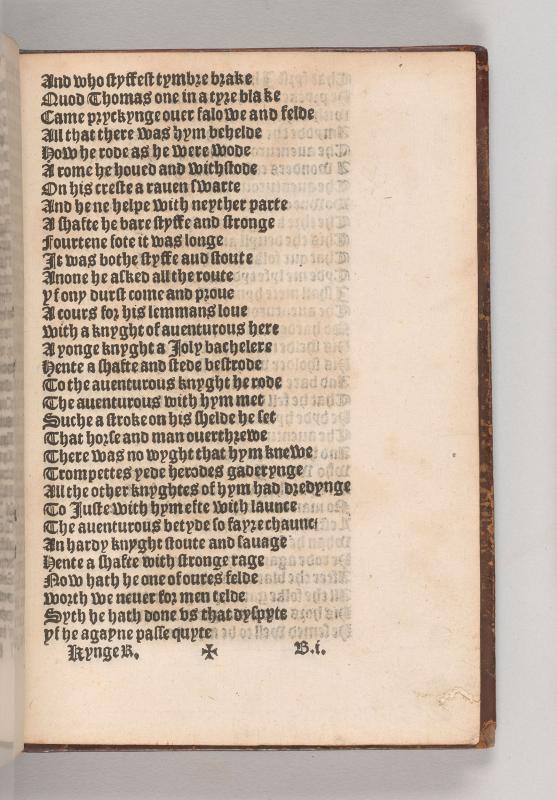 And who styffest tymbre brake
Quod Thomas one in a tyre blake
Came pryckynge ouer falowe and felde
All that there was hym behelde
How he rode as he were wode
A rome he houed and withstode
On his creste a rauen swarte
And he ne helpe with neyther parte
A shafte he bare styffe and stronge
Fourtene fote it was longe
It was bothe styffe aud stoute
Anone he asked all the route
yf ony durst come and proue
A cours for his lemmans loue
with a knyght of auenturous here
A yonge knyght a Joly bachelere
Hente a shafte and stede bestrode
To the auenturous knyght he rode
The auenturous with hym met
Suche a stroke on his shelde he set
That horse and man ouerthrewe
There was no wyght that hym knewe
Trompettes yede herodes gaderynge
All the other knyghtes of hym had dredynge
To Juste with hym efte with launce
The auenturous betyde so fayre chaunc
An hardy knyght stoute and sauage
Hente a shafte with stronge rage
Now hath he one of oures felde
worth we neuer for men telde
Syth he hath done vs that dyspyte
yf he agayne passe quyte
Kynge R. ✠ B.i.